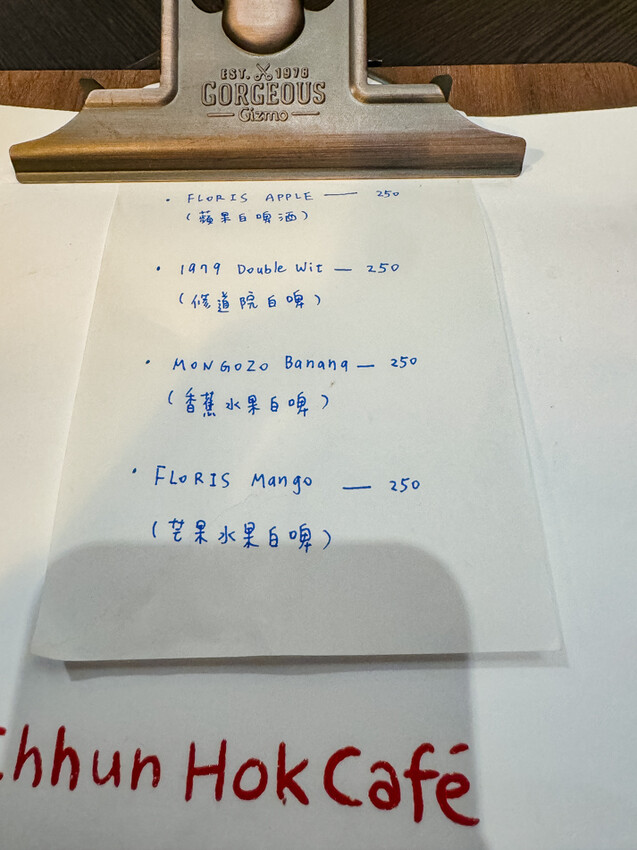 EST. 1978
GORGEOUS
Gizmo
• FLORIS APPLE — 250
(蘋果白啤酒)
• 1979 Double Wit — 250
(修道院白啤)
• MONGOZO Banana — 250
(香蕉水果白啤)
• FLORIS Mango — 250
(芒果水果白啤)
chhun Hok Café